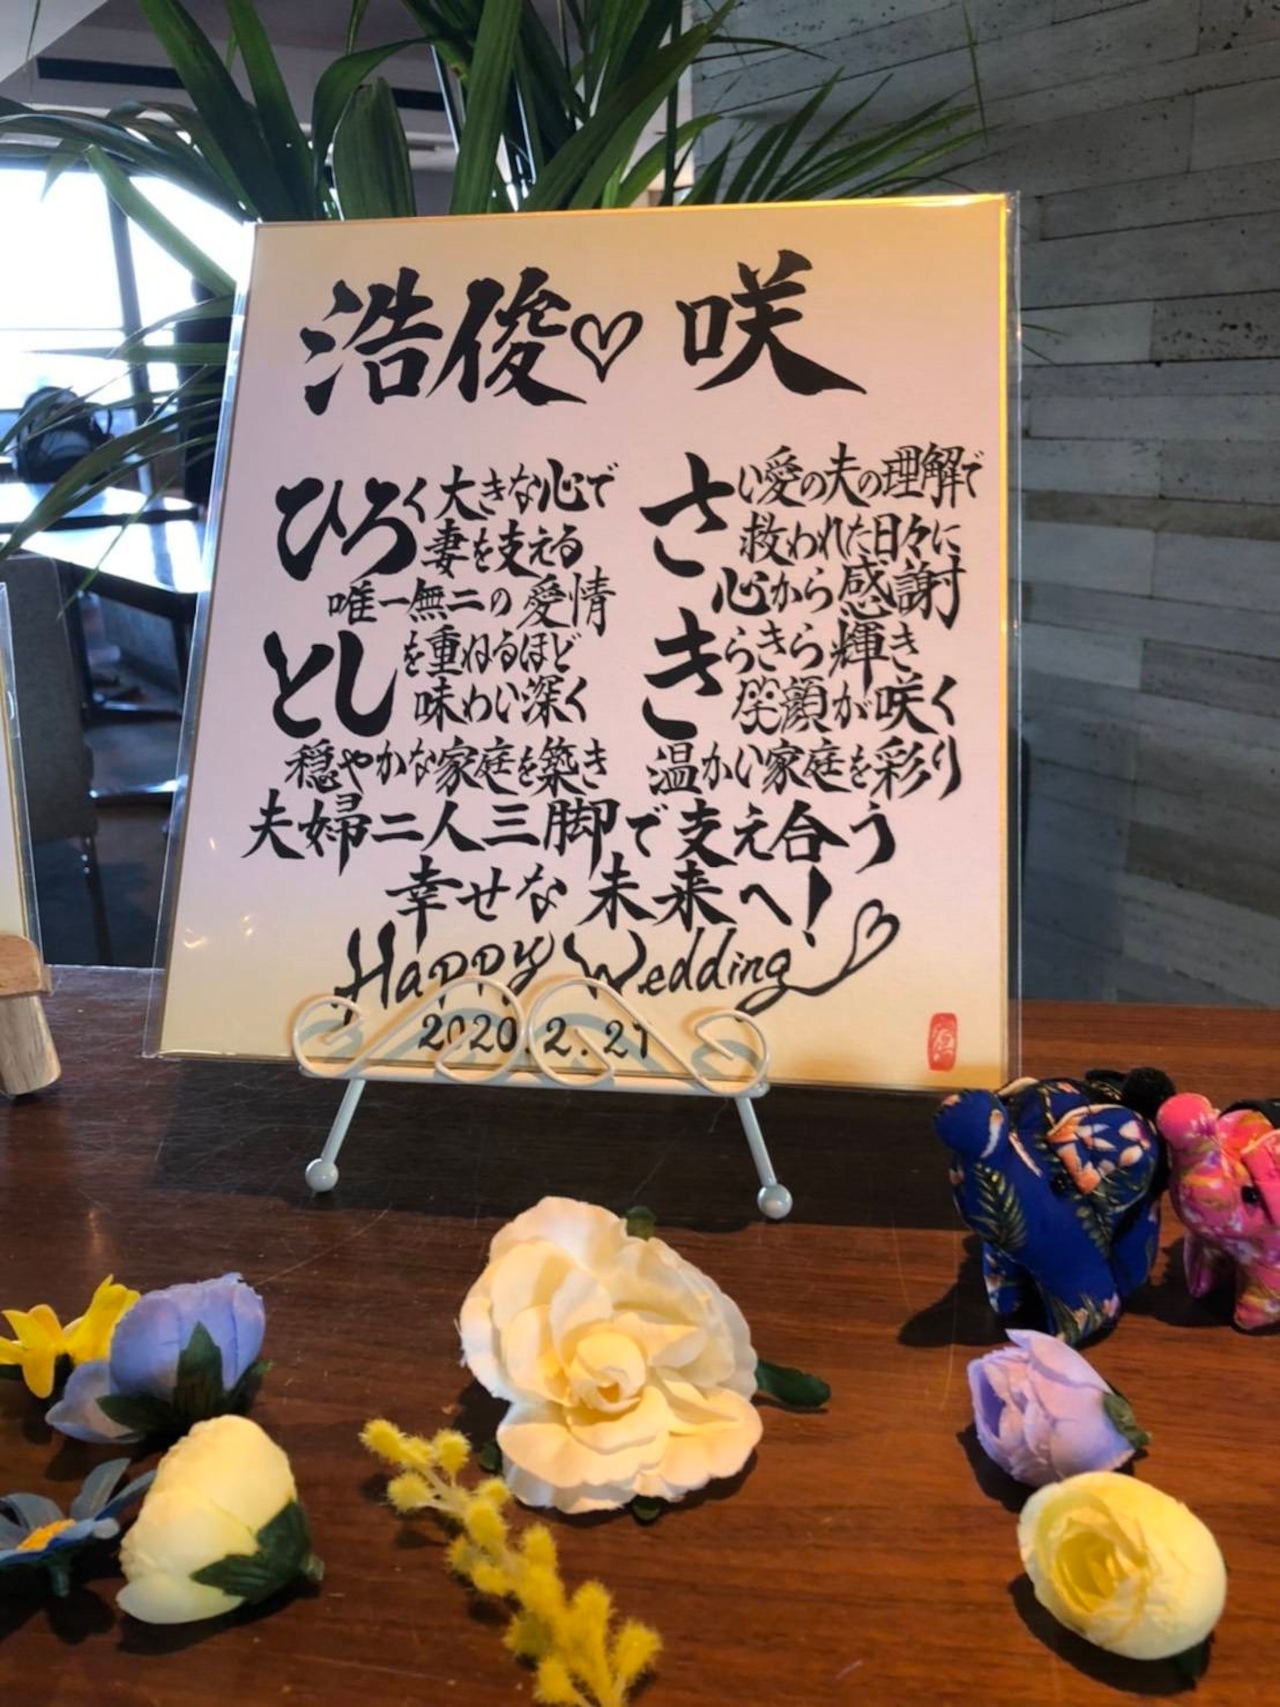 浩俊♡咲
ひろく大きな心で
妻を支える
唯一無二の愛情
としを重ねるほど
味わい深く
穏やかな家庭を築き
さい愛の夫の理解で
救われた日々に
心から感謝
きらきら輝き
笑顔が咲く
温かい家庭を彩り
夫婦二人三脚で支え合う
幸せな未来へ！
Happy Wedding
2020.2.27